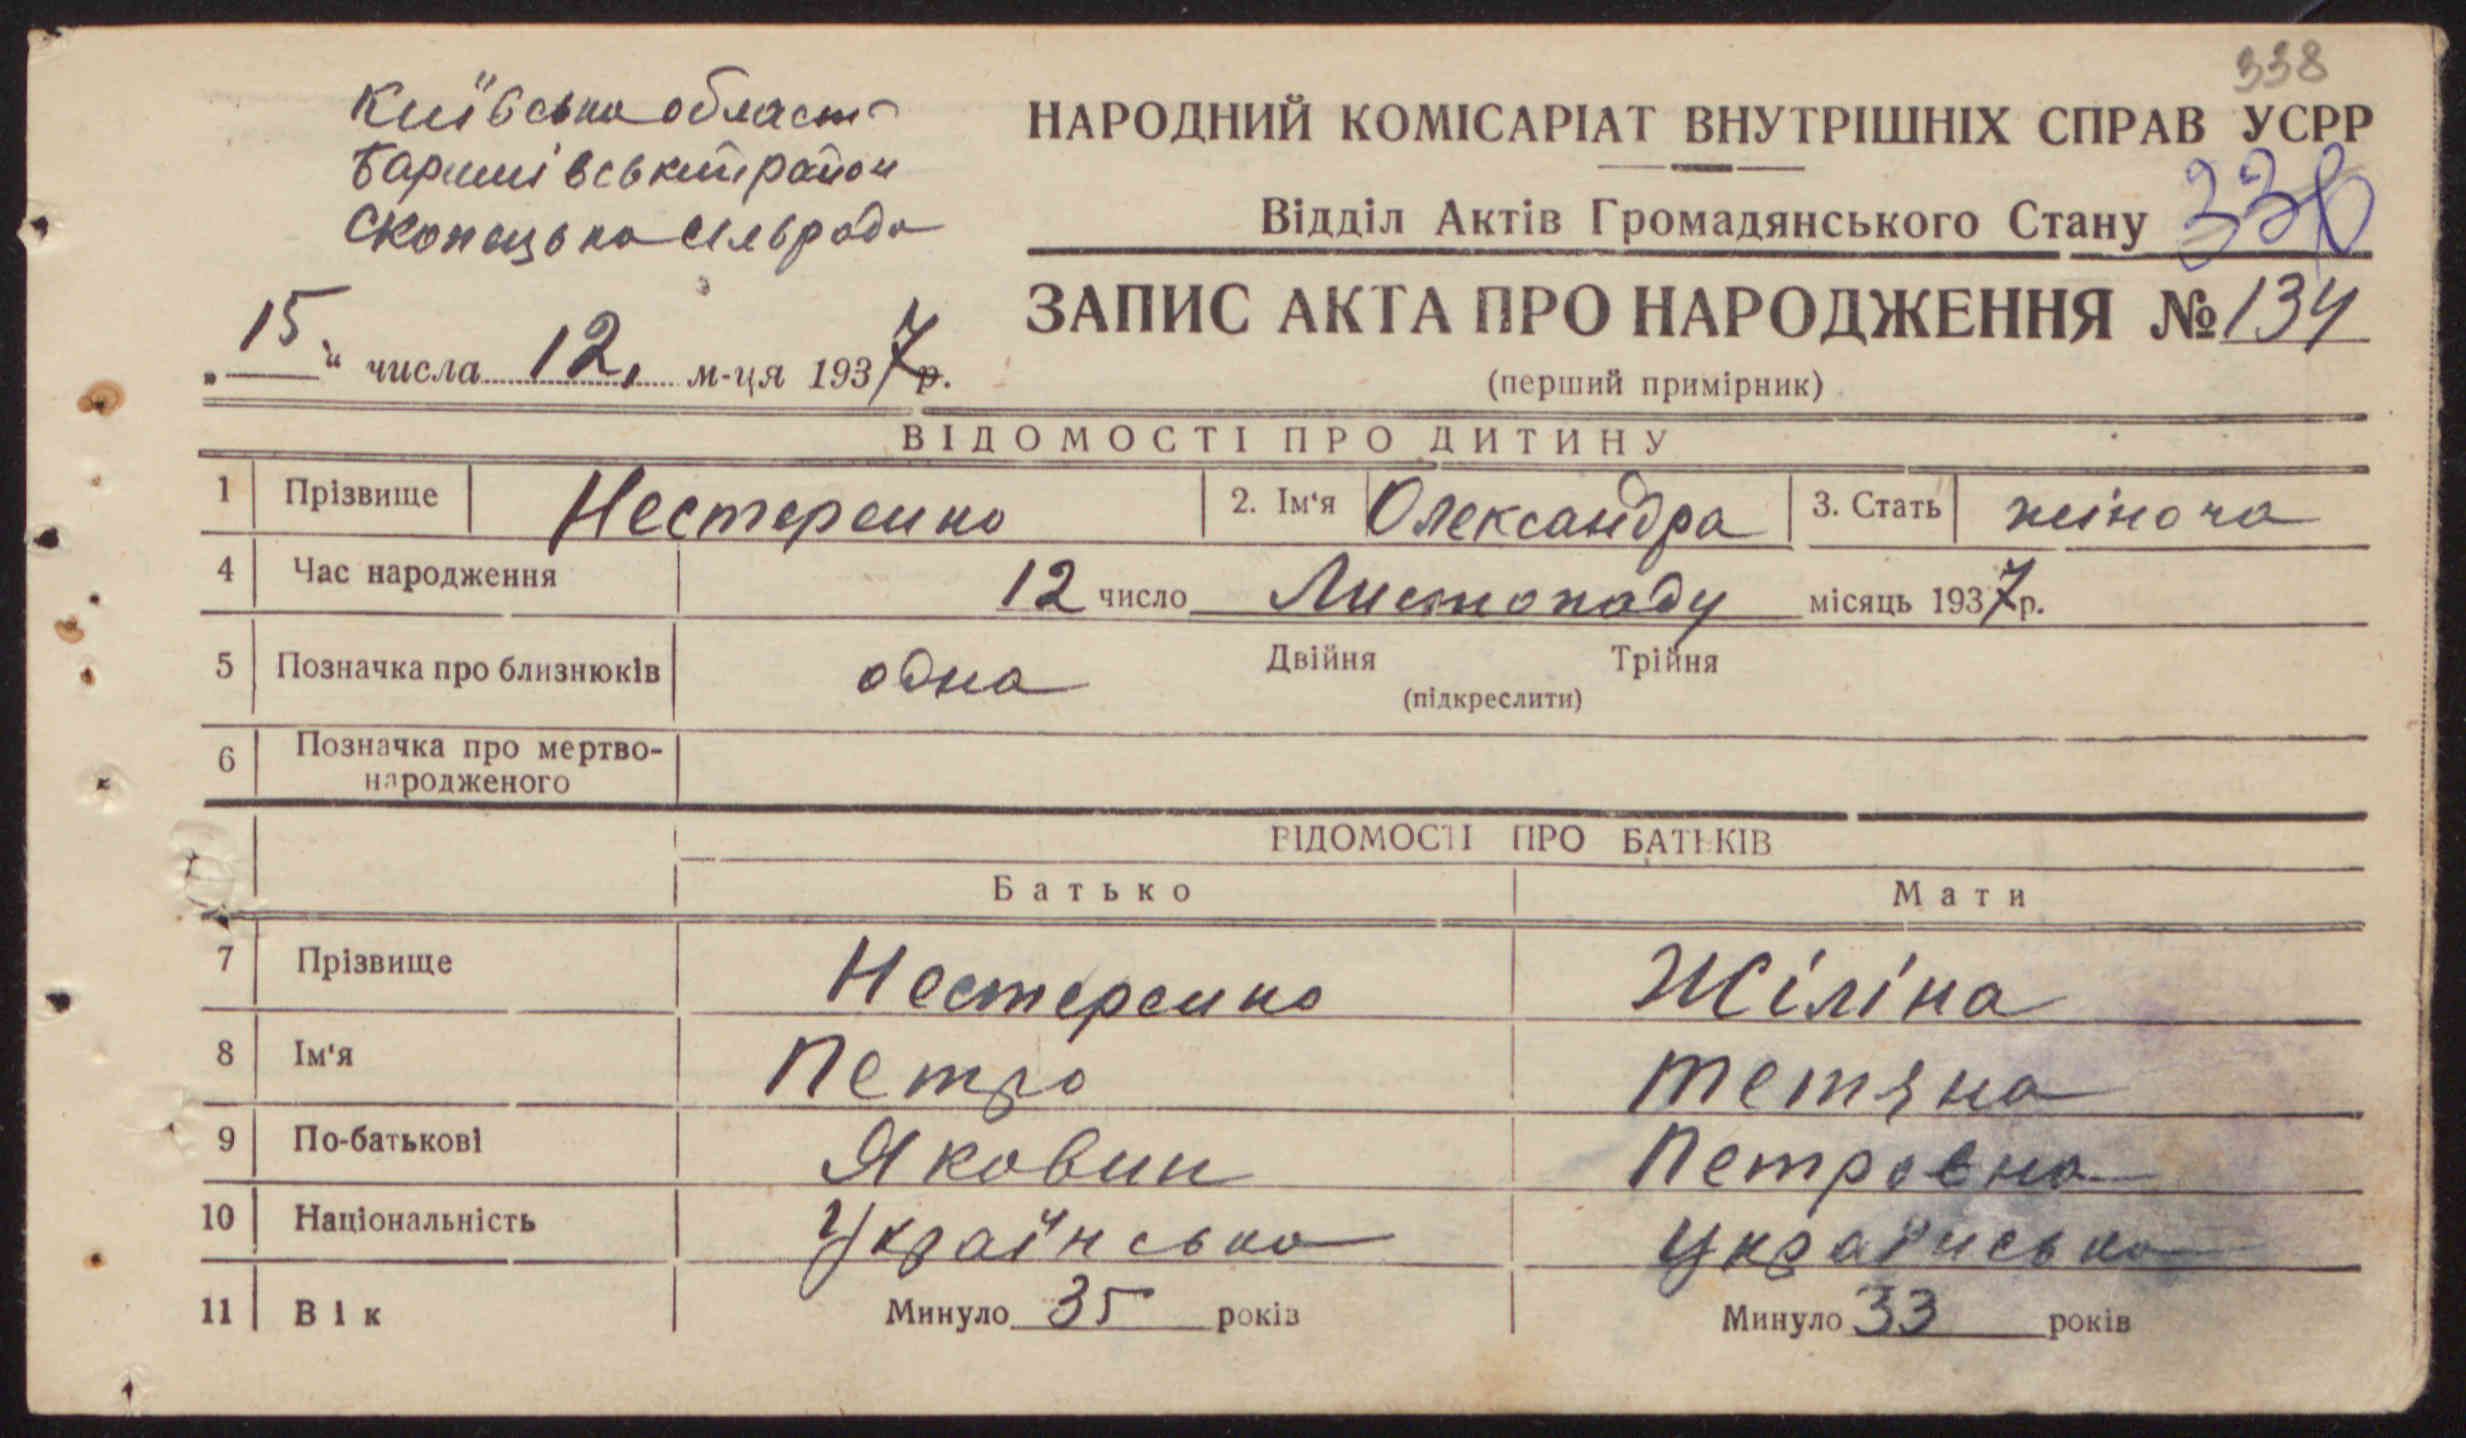 338
Київська область
Баришівський район
Скопецька сільрада
НАРОДНИЙ КОМІСАРІАТ ВНУТРІШНІХ СПРАВ УСРР
Відділ Актів Громадянського Стану
ЗАПИС АКТА ПРО НАРОДЖЕННЯ № 134
(перший примірник)
„15“ числа 12. м-ця 1937 р.
ВІДОМОСТІ ПРО ДИТИНУ
1 Прізвище Нестеренко 2. Ім'я Олександра 3. Стать жіноча
4 Час народження 12 число Листопаду місяць 1937 р.
5 Позначка про близнюків одна Двійня Трійня
(підкреслити)
6 Позначка про мертво-
народженого
ВІДОМОСТІ ПРО БАТЬКІВ
Батько Мати
7 Прізвище Нестеренко Жіліна
8 Ім'я Петро Тетяна
9 По-батькові Якович Петровна
10 Національність Українська Українська
11 Вік Минуло 35 років Минуло 33 років